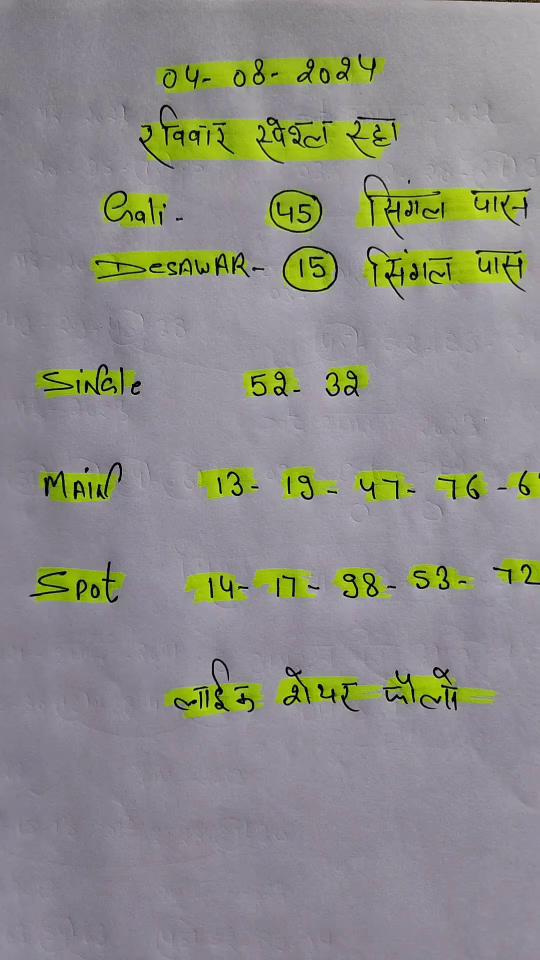 04-08-2024
रविवार स्पेशल रहा
Gali - 45 सिंगल पास
DESAWAR - 15 सिंगल पास
Single 52- 32
MAIN 13- 19- 47- 76 -6
Spot 14- 17- 98- 53- 72
लाईक शेयर फॉलो